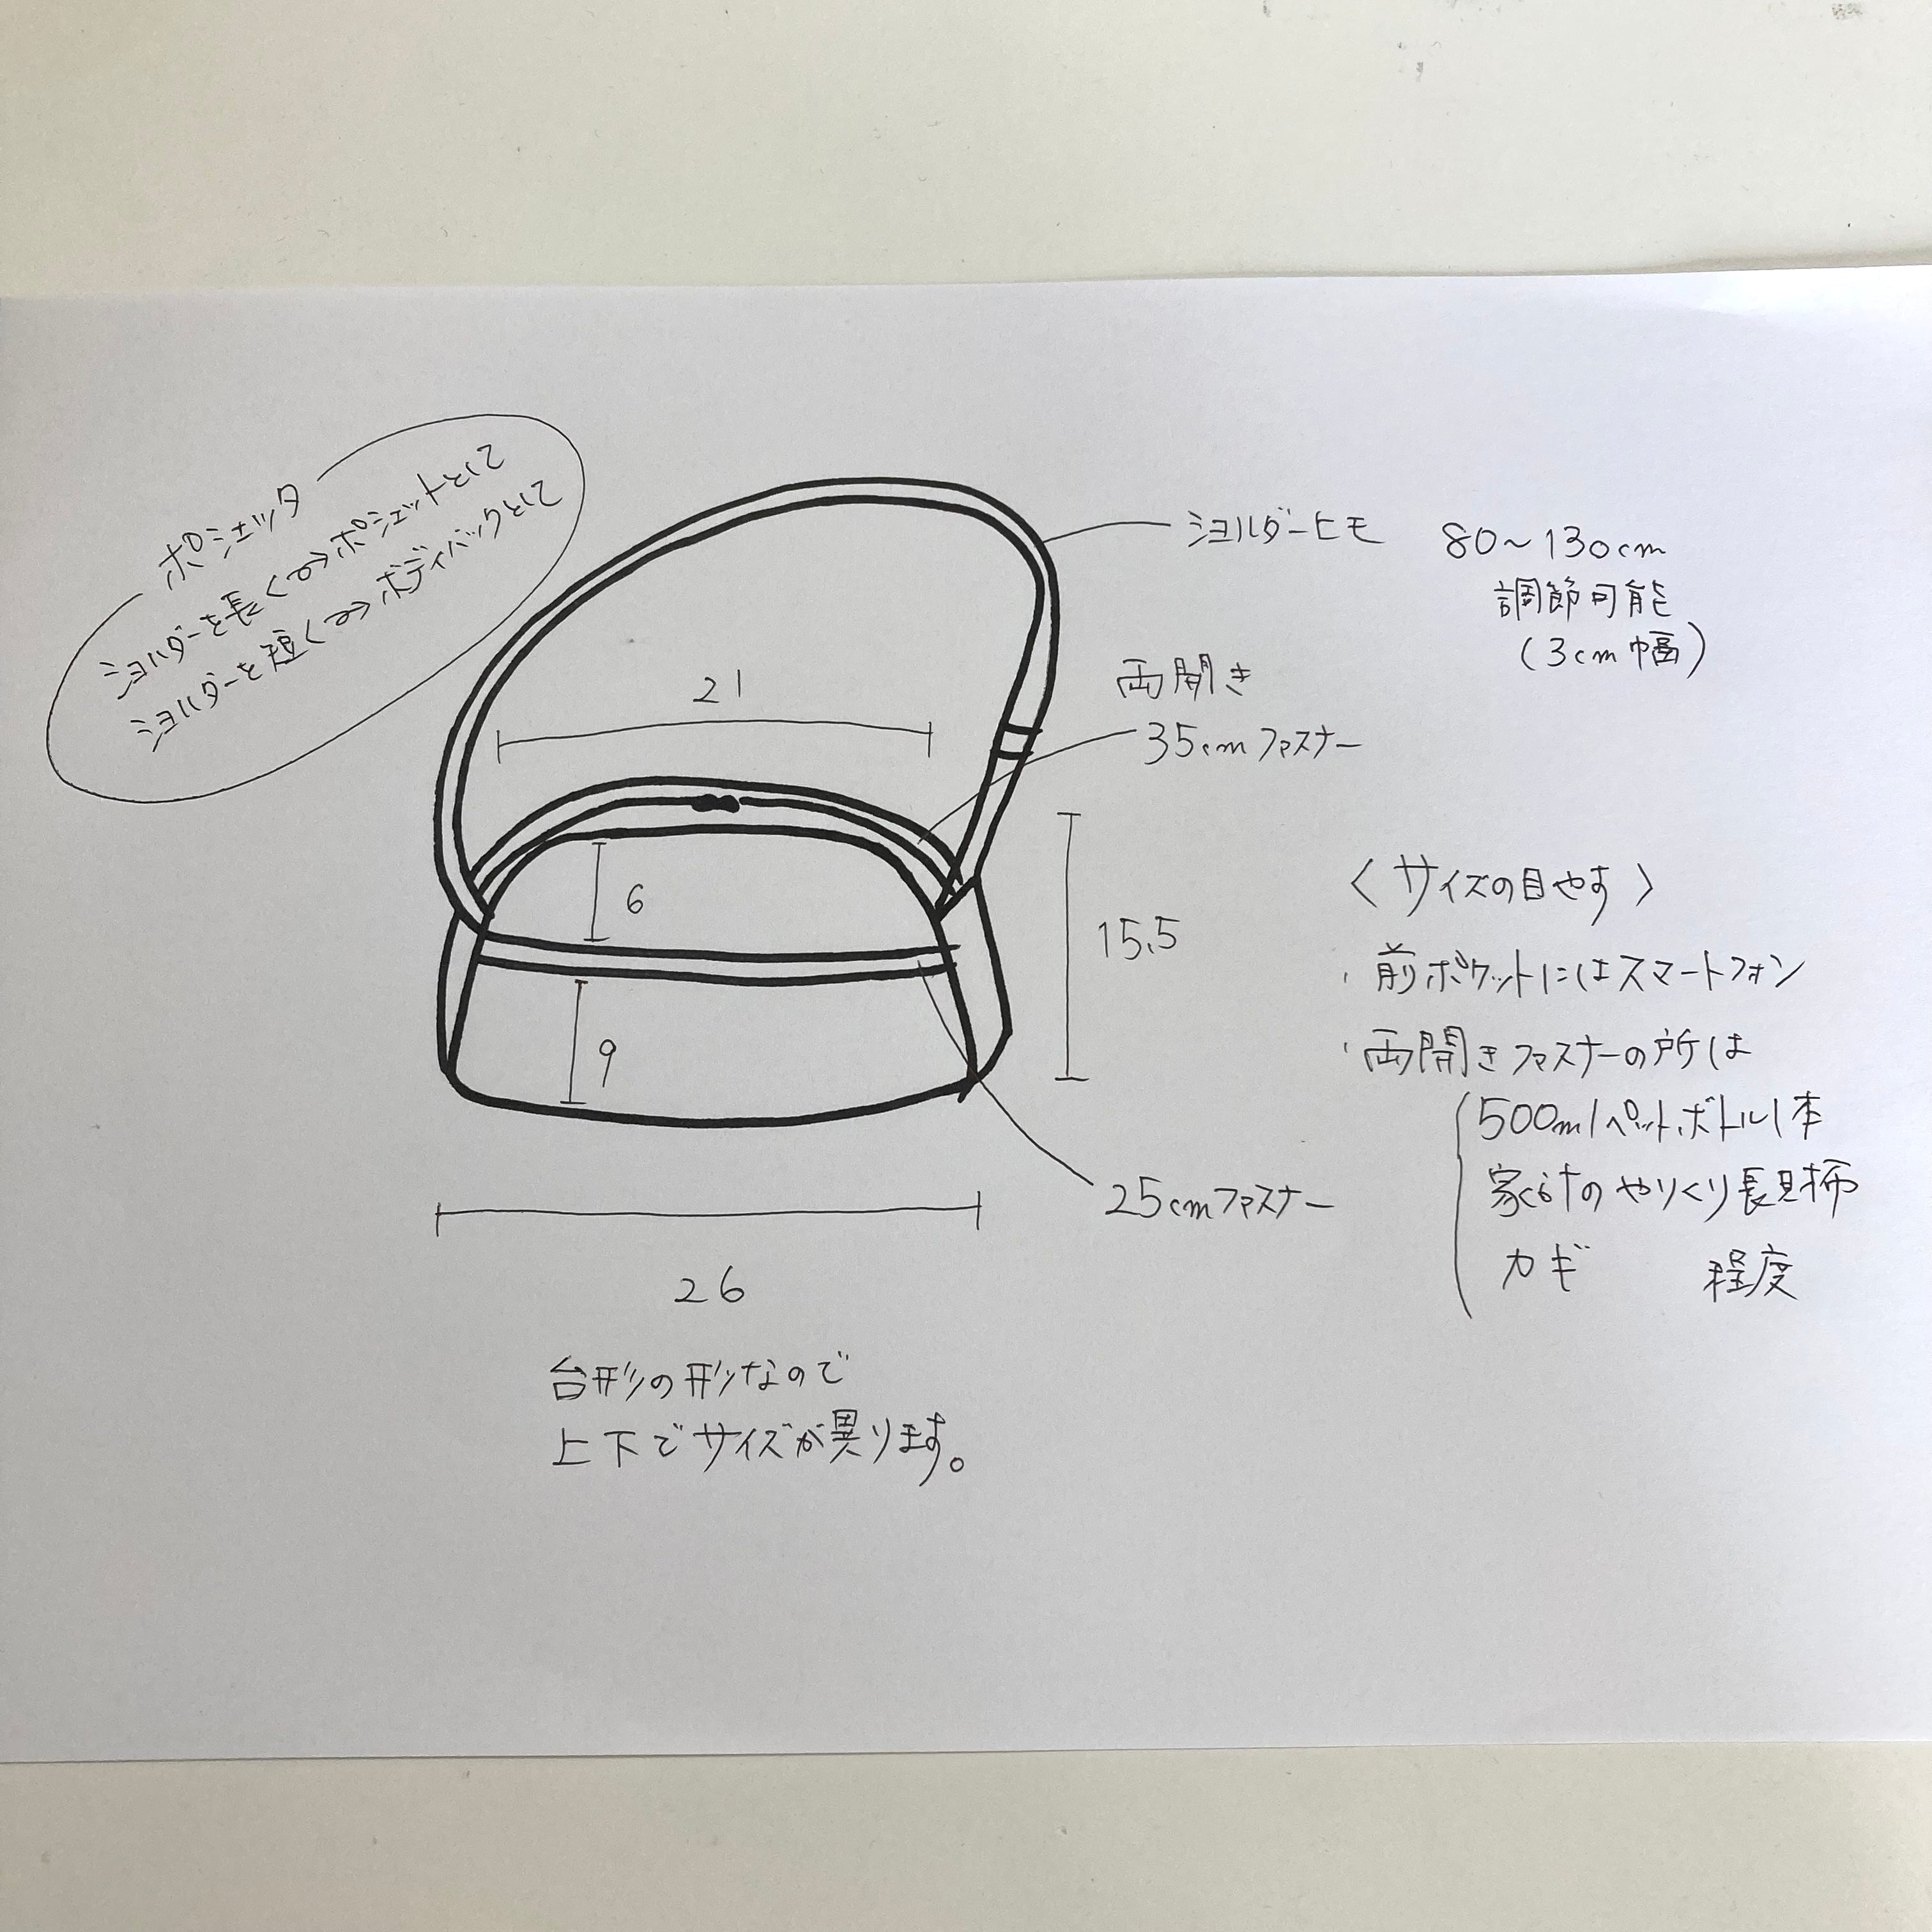 ポシェッタ
ショルダーを長くの⇒ポシェットとして
ショルダーを短くの⇒ボディバックとして
ショルダーヒモ 80～130cm
調節可能
(3cm幅)
21
両開き
35cmファスナー
6
15.5
9
25cmファスナー
26
台形の形なので
上下でサイズが異ります。
〈サイズの目やす〉
・前ポケットにはスマートフォン
・両開きファスナーの所は
500mlペットボトル1本
家計のやりくり長財布
カギ 程度